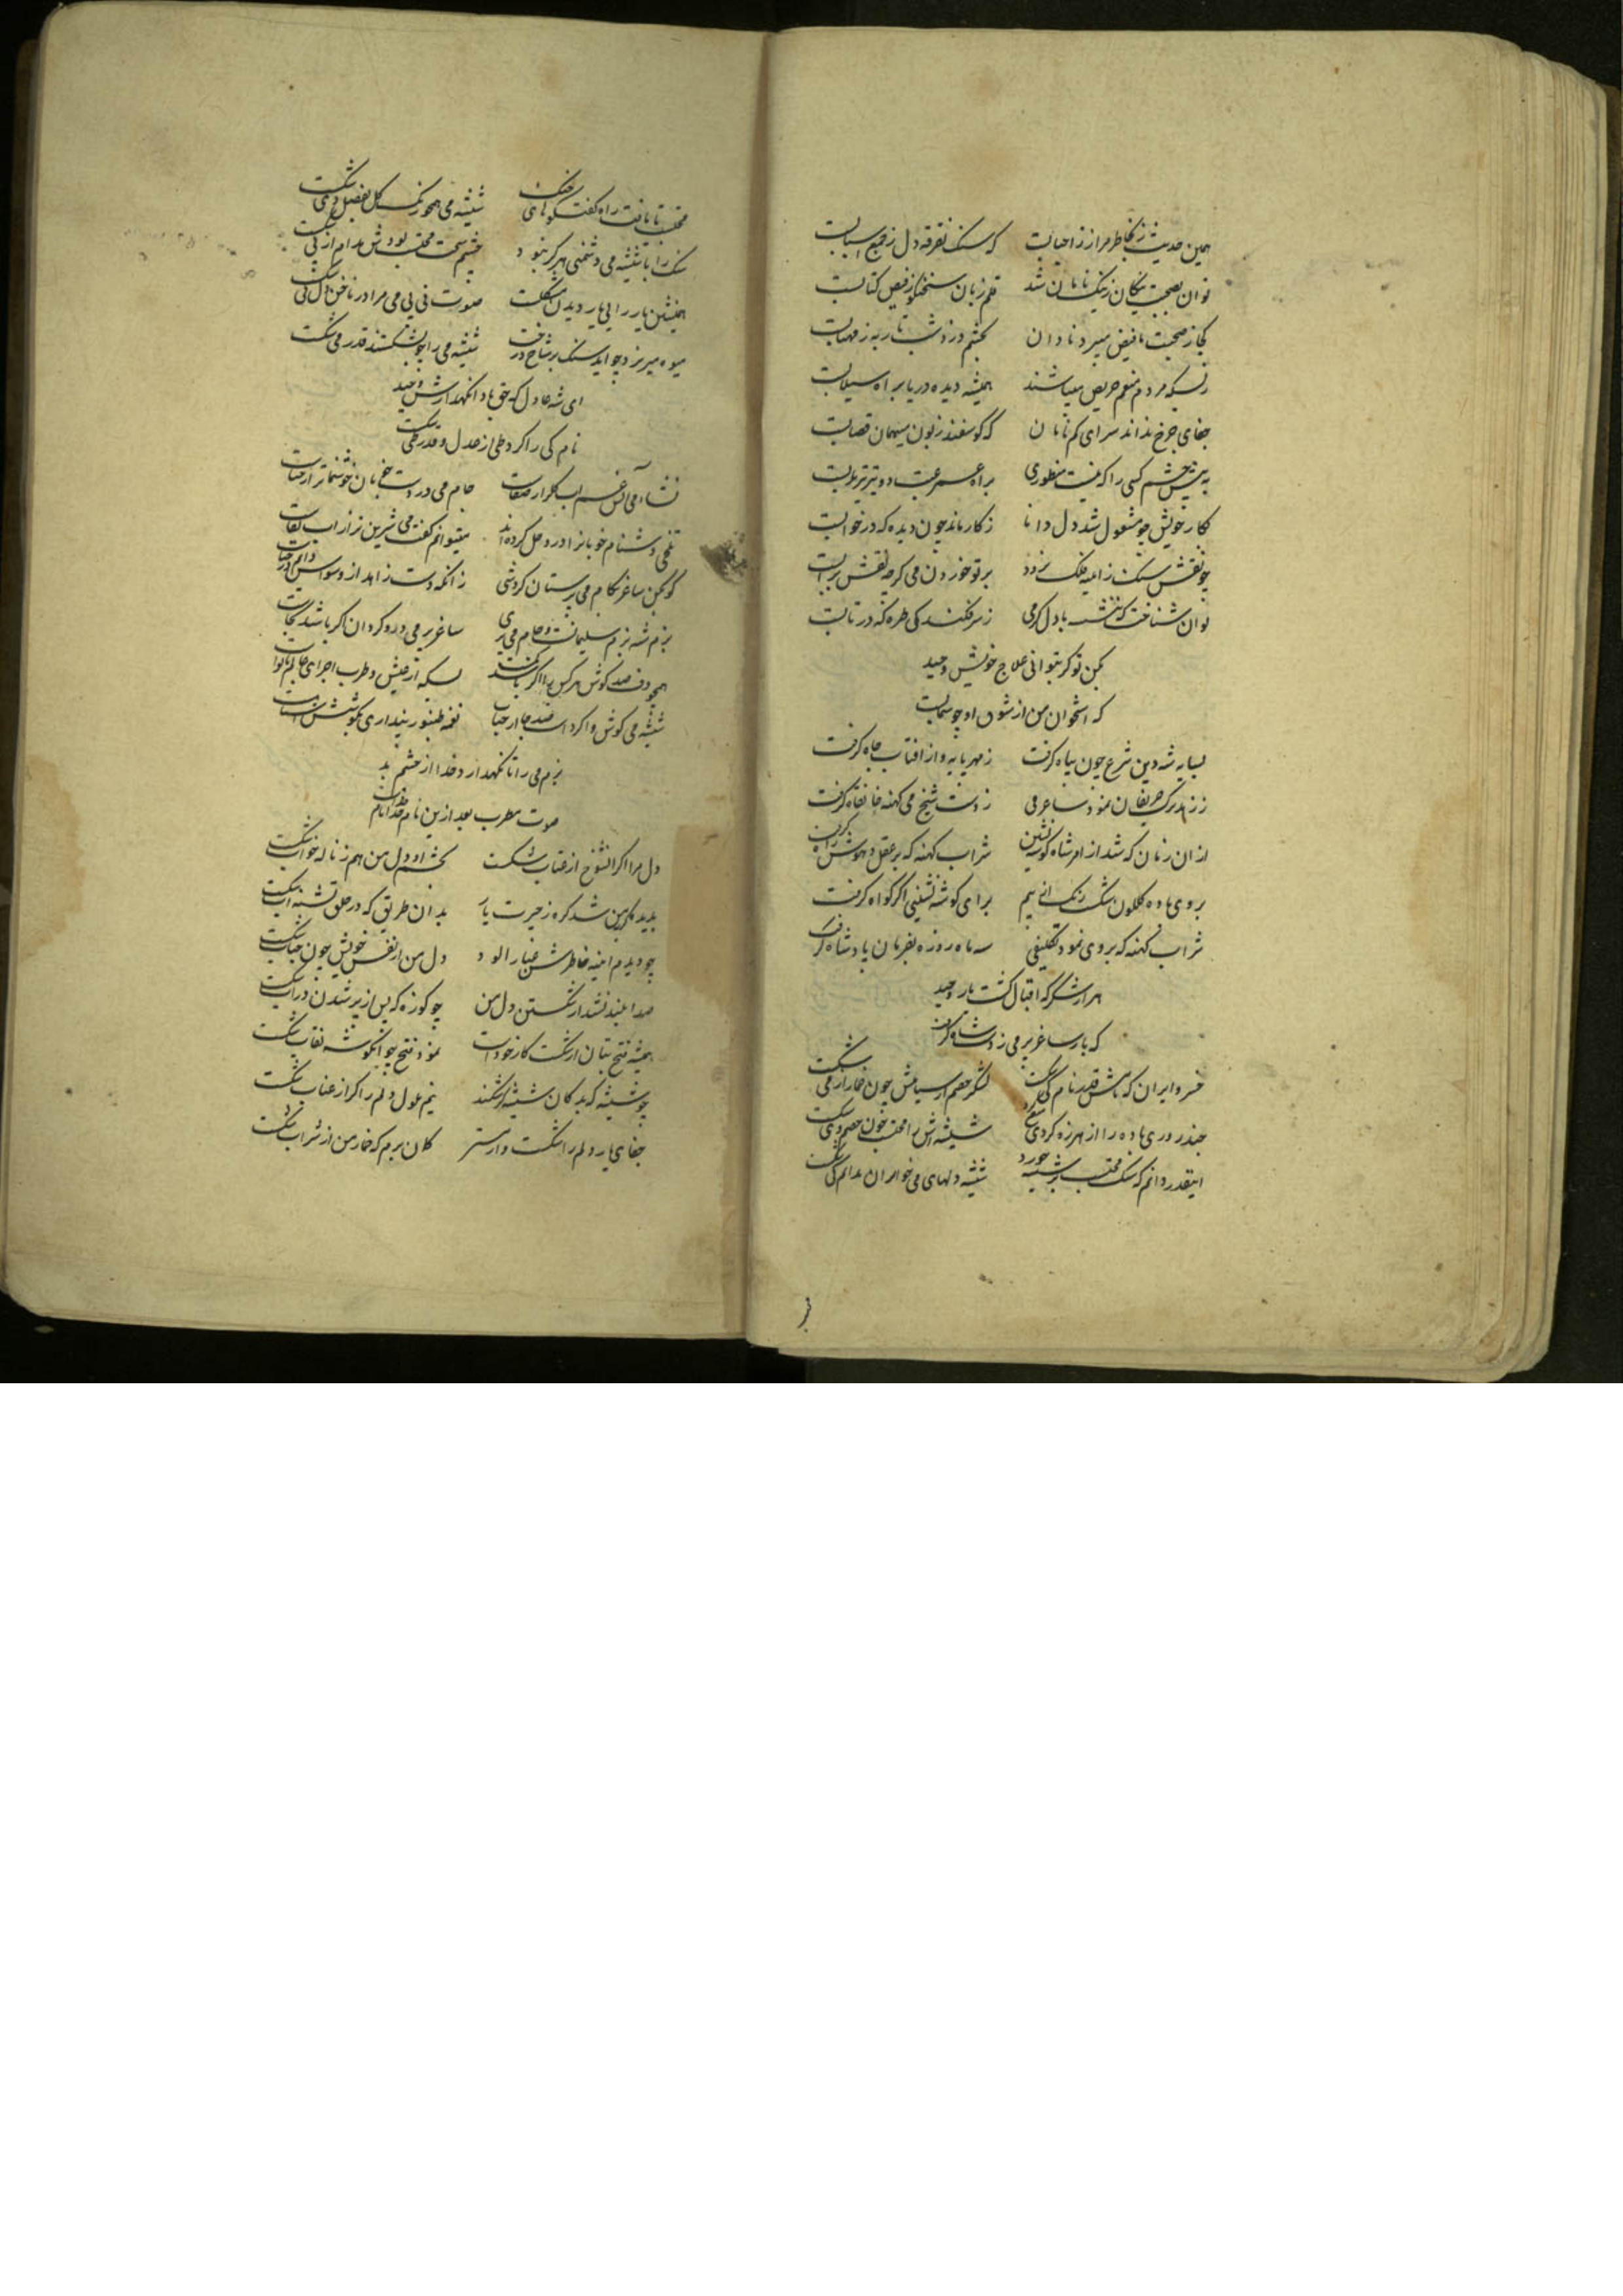 همین حدیث بخاطر مرا ز احبابست که سنک تفرقه دل ز جمع اسبابست
توان بصحبت نیکان ز نیک نامان شد قلم زبان سخنکو ز فیض کتابست
کجا ز صحبت ما فیض میبرد نادان بچشم دزد شب تار به ز مهتابست
زبسکه مردم منعم حریص میباشند همیشه دیده دریا براه سیلابست
جفای چرخ نداند سرای کم نانان که کوسفند زبون میهمان قصابست
به پیش چشم کسی را که نیست منظوری براه عمر
بکار خویش چو مشغول شد دل دانا ز کار ماند چون دیده که در خوابست
چو نقش سنک ز آیینه فلک نرود بر تو خوردن می کرچه نقش بر آبست
توان شناخت که با دل کرمی ز سر فکند کی طره که در تابست
بکن تو کر بتوانی علاج خویش وحید
که استخوان من از شوق او چو سیمابست
بسایه شه دین شرع چون پناه کرفت ز مهر پایه و از افتاب جاه کرفت
ز زهد ترک حریفان نمود ساغر می ز دست شیخ می کهنه خانقاه کرفت
از ان زمان که شد از امر شاه کوشه نشین شراب کهنه که بر عقل و هوش راه کرفت
بروی باده کلکون شکست رنک برای کوشه نشینی اکر کواه کرفت
شراب کهنه که بروی نمود تکلیفی سه ماه روزه بفرمان پادشاه کرفت
هزار شکر که اقبال کشت یار وحید
که باز ساغر پر می ز دست شاه کرفت
خسرو ایران که شد قدر نام کی شکست لشکر خصم از سپاهش چون خمار از می شکست
باده را از هرزه کردی شیشه اش را محتسب خون
اینقدر دانم که سنک محتسب بر شیشه خورد شیشه دلهای می خواران ندانم کی شکست
محتسب تا یافت راه کفتکوهای خنک شیشه می همچو رنک کل بفصل دی شکست
سنک را با شیشه می دشمنی هرکز نبود چشم محتسب بودش مدام از پی شکست
همنشین یار را بی یار دیدن مشکلست صوت نی بی می مرا در ناخن دل نی شکست
میوه میریزد چو اید سنک بر شاخ درخت شیشه می را چو بشکستند قدر می شکست
ای شه عادل که حق بادا نکهدارش وحید
نام کی را کرد طی از عدل و قدر کی شکست
نشاء می اتش اب کلزار صفات جام می در دست خوبان خوشنماتر از حیات
تلخی دشنام خوبانرا درو حل کرده اند میتوانم کفت می شیرین تر از اب نبات
کو مکن ساغر بکام می پرستان کردشی زانکه دست زاهد از وسواس دایم در
بزم شه بزم سلیمانست و جام می پری ساغر پر می درو کردان
همچو دف صد کوش هر کس را اکر باشد بسکه از عیش و طرب اجزای
شیشه می کوش وا کرد است صد جا از حباب نغمه طنبور پنداری بکوشش
بزم می را تا نکهدارد خدا از چشم بد
صوت مطرب بعد ازین نام خدا
دل مرا اکر انشوخ از عتاب شکست بچشم او دل من هم ز ناله خواب شکست
بدیده من شد کره ز حیرت یار بدان طریق که در حلق تشنه اب شکست
چو دیدم اینه خاطرش غبار الود دل من از نفس خویش چون حباب شکست
صدا بلند نشد از شکستن دل من چو کوزه که پس از پر شدن در اب شکست
همیشه فتح بتان از شکست کار خوداست نمود فتح چو انکو شه نقاب شکست
چو شیشه که بدکان شیشه کر شکند نیم ملول دلم را اکر از عتاب شکست
جفای یار دلم را شکست و ارستم کمان برم که خمار من از شراب شکست